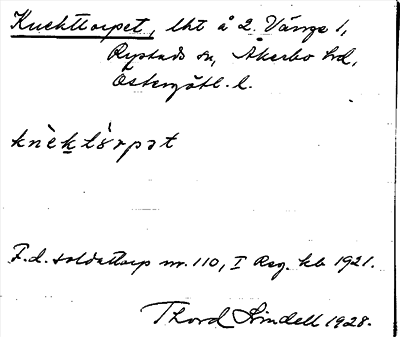 Knekttorpet, lht å 2. Vänge 1,
Rystads sn, Åkerbo hd,
Östergötl. l.
knèktòrpət
F.d. soldattorp nr. 110, I Reg. kb 1921.
Thord Lindell 1928.